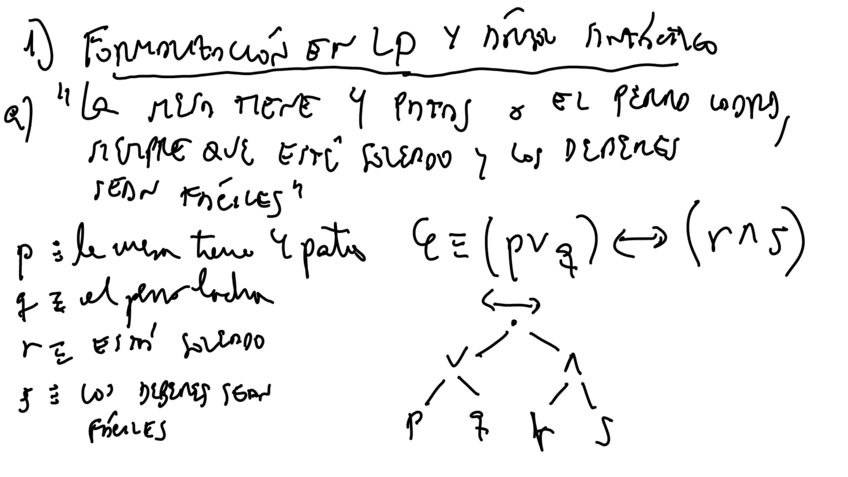 1) FORMALIZACIÓN EN LP Y ÁRBOL SINTÁCTICO
a) "LA MESA TIENE 4 PATAS o EL PERRO LADRA,
SIEMPRE QUE ESTÉ SOLEADO y LOS DEBERES
SEAN FÁCILES"
p ≡ la mesa tiene 4 patas
φ ≡ (p ∨ q) ↔ (r ∧ s)
q ≡ el perro ladra
r ≡ ESTÁ SOLEADO
s ≡ LOS DEBERES SEAN
FÁCILES
↔
∨ ∧
p q r s